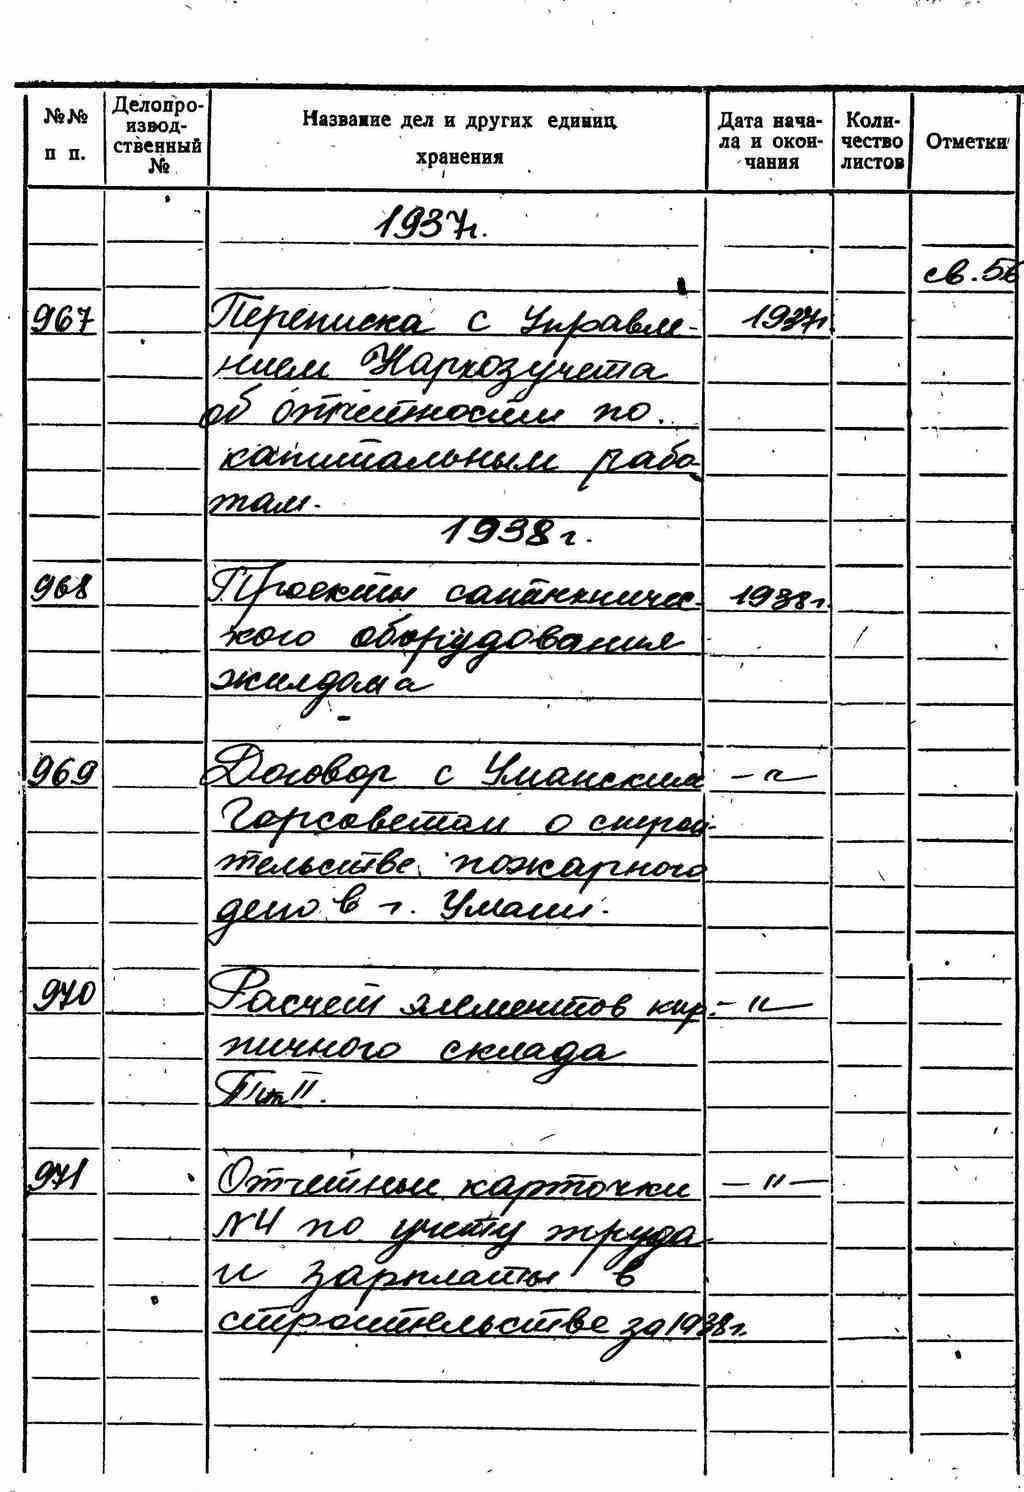 №№ п п.
Делопро-
извод-
ственный
№
Название дел и других единиц
хранения
Дата нача-
ла и окон-
чания
Коли-
чество
листов
Отметки
1937г.
св. 56
967 Переписка с Управле- 1937г.
нием Нархозучета
об отчетности по
капитальным рабо-
там.
1938г.
968 Проекты сантехничес- 1938г.
кого оборудования
жилдома
969 Договор с Уманским —"—
Горсоветом о строи-
тельстве пожарного
депо в г. Умани.
970 Расчет элементов кир- —"—
пичного склада
971 Отчетные карточки —"—
№4 по учету труда
и зарплаты в
строительстве за 1938г.